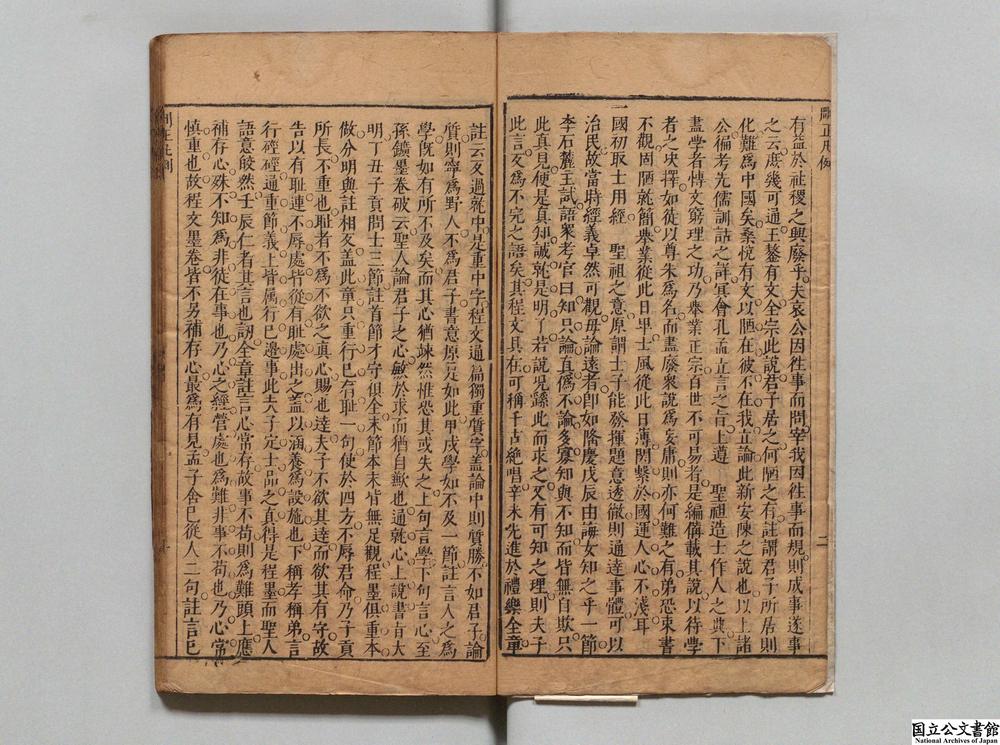 刪正凡例
有益於社稷之興廢乎夫哀公因往事而問宰我因往事而規則成事遂事
之云庶幾可通王鏊有文全宗此說君子居之何陋之有註謂君子所居則
化難為中國矣桑悅有文以陋在彼不在我立論此新安陳之說也以上諸
公徧考先儒訓詁之詳冥會孔孟立言之旨上遵 聖祖造士作人之典下
盡學者博文窮理之功乃舉業正宗百世不可易者是編備載其說以待學
者之抉擇如徒以尊朱為名而盡廢衆說為妄庸則亦何難之有弟恐束書
不觀固陋就簡舉業從此日卑士風從此日薄關繫於國運人心不淺耳
一國初取士用經 聖祖之意原謂士子能發揮題意透徹則通達事體可以
治民故當時經義卓然可觀毋論遠者即如隆慶戊辰由誨女知之乎一節
李石麓王試語衆考官曰知只論真僞不論多寡知與不知而皆無自欺只
此真見便是真知誠就是明了若說况繇此而求之又有可知之理則夫子
此言反為不完之語矣其程文具在可稱千古絶唱辛未先進於禮樂全章
二
註云文過就中是重中字程文通篇獨重質字蓋論中則質勝不如君子論
質則寧為野人不為君子書意原是如此甲戌學如不及一節註言人之為
學旣如有所不及矣而其心猶竦然惟恐其或失之上句言學下句言心至
孫鑛墨卷破云聖人論君子之心敏於求而猶自歉也通就心上說書旨大
明丁丑子貢問士三節註首節才守俱全末節本末皆無足觀程墨俱重本
做分明與註相反蓋此章只重行己有耻一句使於四方不辱君命乃子貢
所長不重也耻者不為不欲之真心賜也達夫子不欲其達而欲其有守故
告以有耻連不辱處皆從有耻處出之蓋以涵養為設施也下稱孝稱弟言
行硜硜通重節義上皆屬行己邊事此夫子定士品之真得是程墨而聖人
語意皎然壬辰仁者其言也訒全章註言心常存故事不苟則為難頭上應
補存心殊不知為非徒在事也乃心之經營處也為難非事不苟也乃心常
慎重也故程文墨卷皆不另補存心最為有見孟子舍己從人二句註言己
国立公文書館
National Archives of Japan